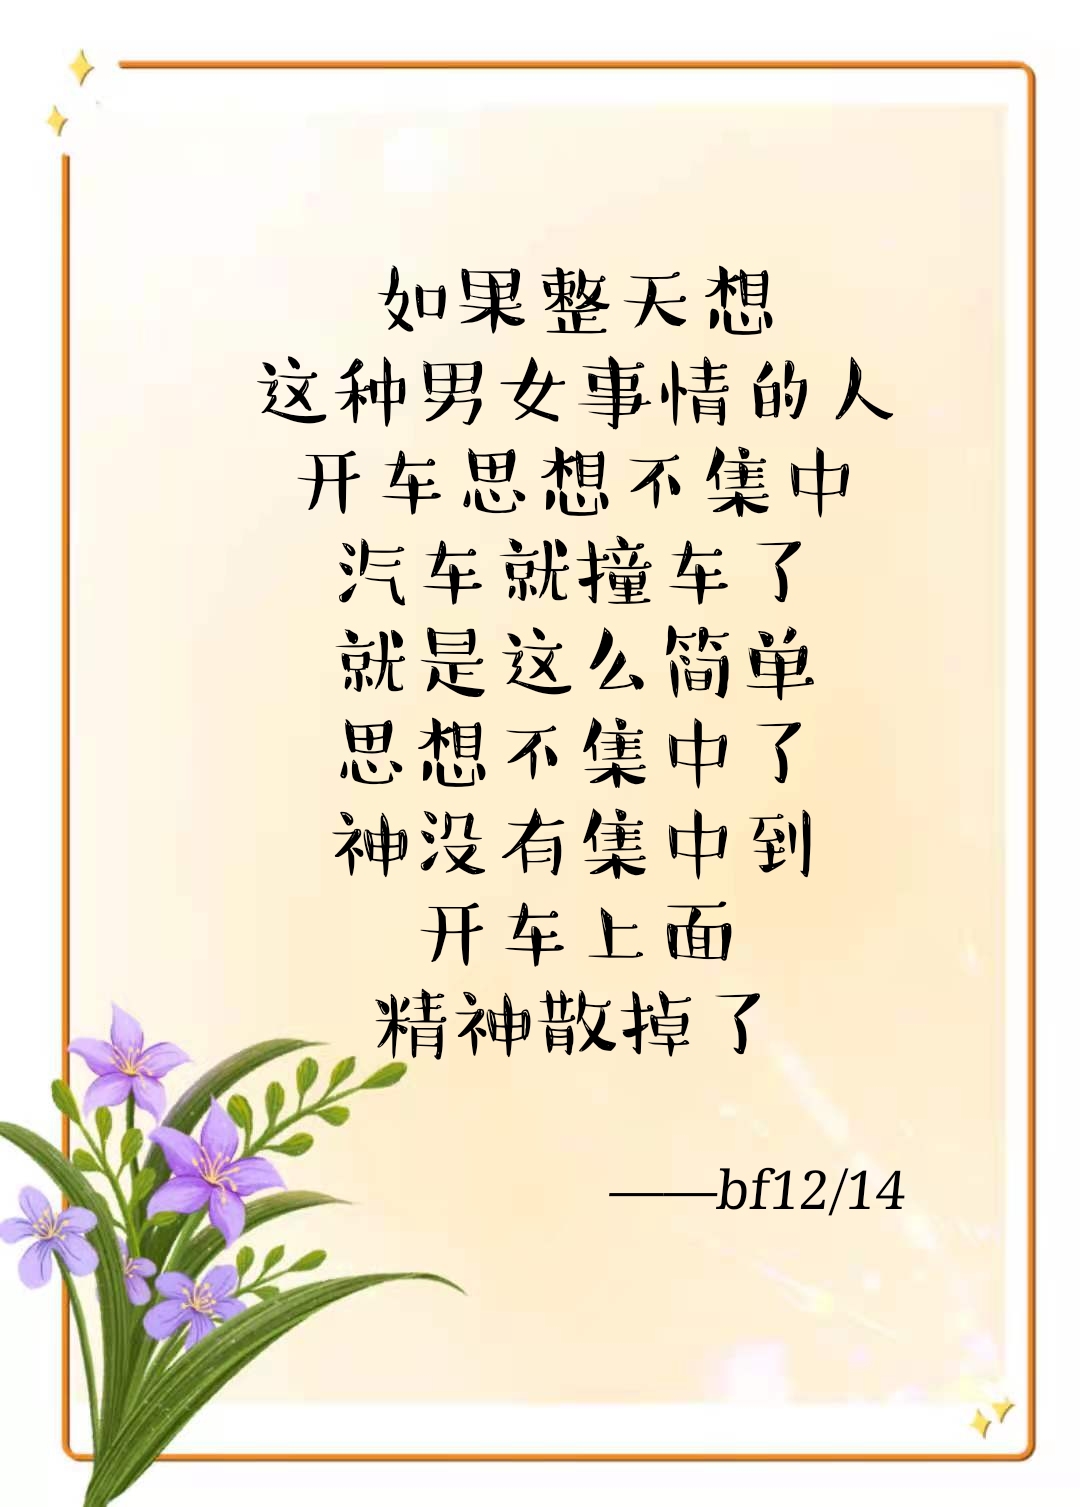 如果整天想
这种男女事情的人
开车思想不集中
汽车就撞车了
就是这么简单
思想不集中了
神没有集中到
开车上面
精神散掉了
——bf12/14